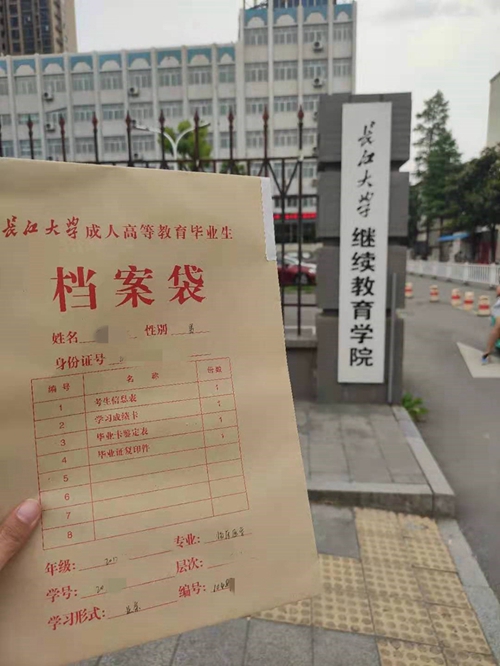 长江大学成人高等教育毕业生
档案袋
姓名 性别
身份证号
编号 名称 份数
1 考生信息表 1
2 学习成绩卡 1
3 毕业卡鉴定表 1
4 毕业证复印件 1
5
6
7
8
年级: 专业: 临床医学
学号: 层次:
学习形式: 编号:
长江大学
继续教育学院